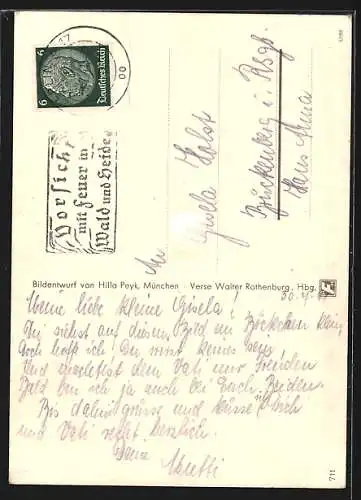 17
00
6 Deutsches Reich 6
Vorsicht
mit Feuer in
Wald und Heide
An
Gisela
Bückenberg i. Rsgb.
Haus Anna
Bildentwurf von Hilla Peyk, München Verse Walter Rothenburg, Hbg.
30.
Meine liebe kleine Gisela!
Du siehst auf diesem Bild ein Böckchen klein,
doch hoff ich! Du wirst keines sein
Und machst dem Vati nur Freuden
Bald bin ich ja auch bei Euch Beiden.
Bis dahin grüsse und küsse Dich
und Vati recht herzlich.
Deine
Mutti
711